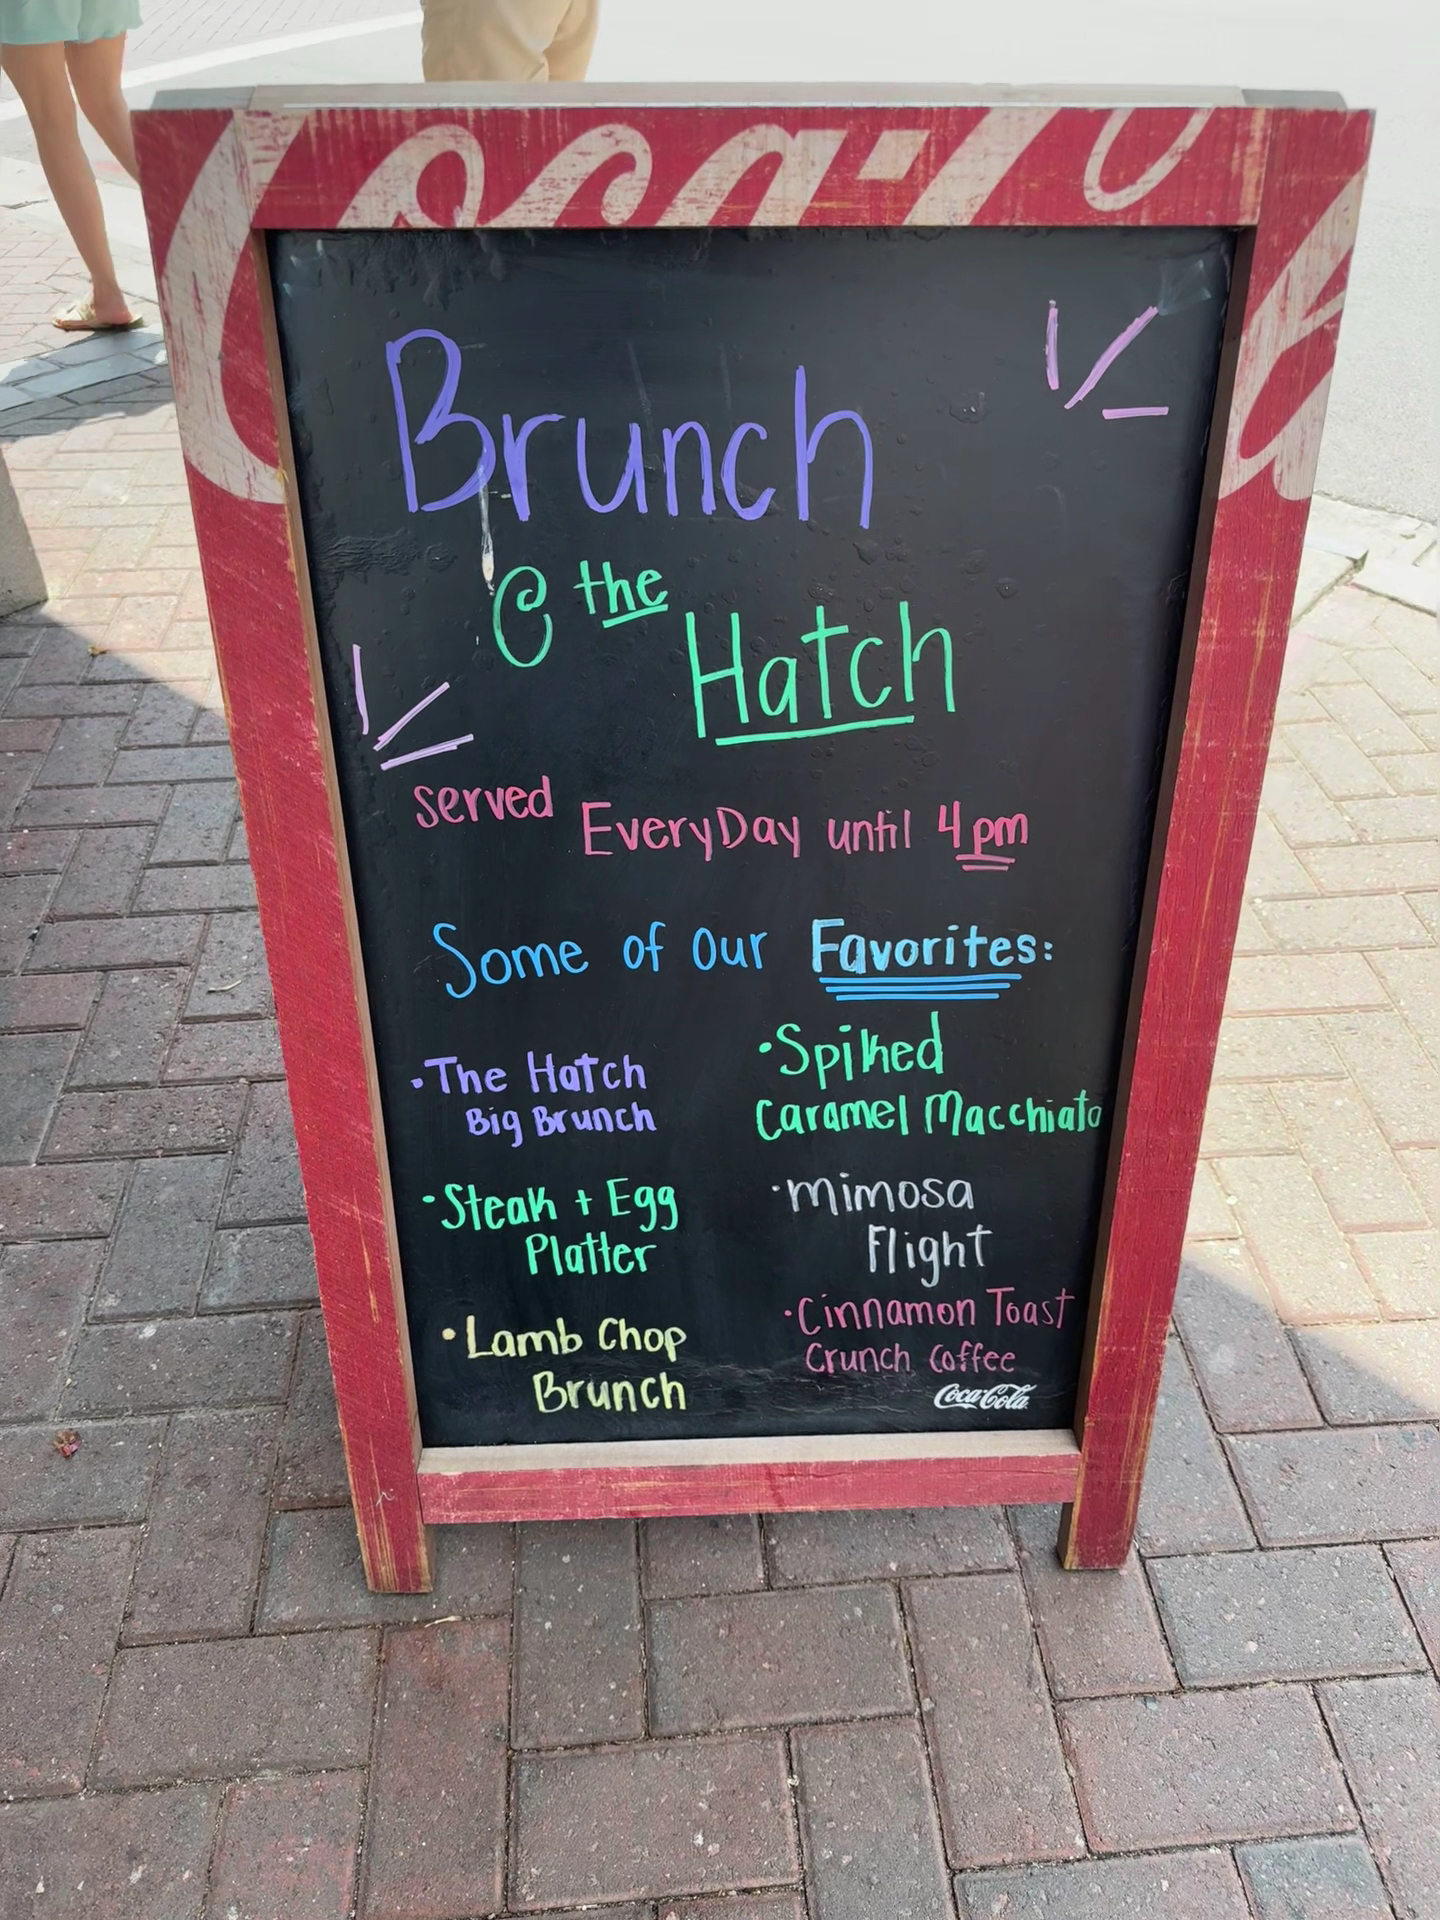 Coca-Cola
Brunch
@ the
Hatch
served EveryDay until 4pm
Some of our Favorites:
• The Hatch
Big Brunch
• Steak + Egg
Platter
• Lamb Chop
Brunch
• Spiked
Caramel Macchiato
• Mimosa
Flight
• Cinnamon Toast
Crunch Coffee
Coca-Cola